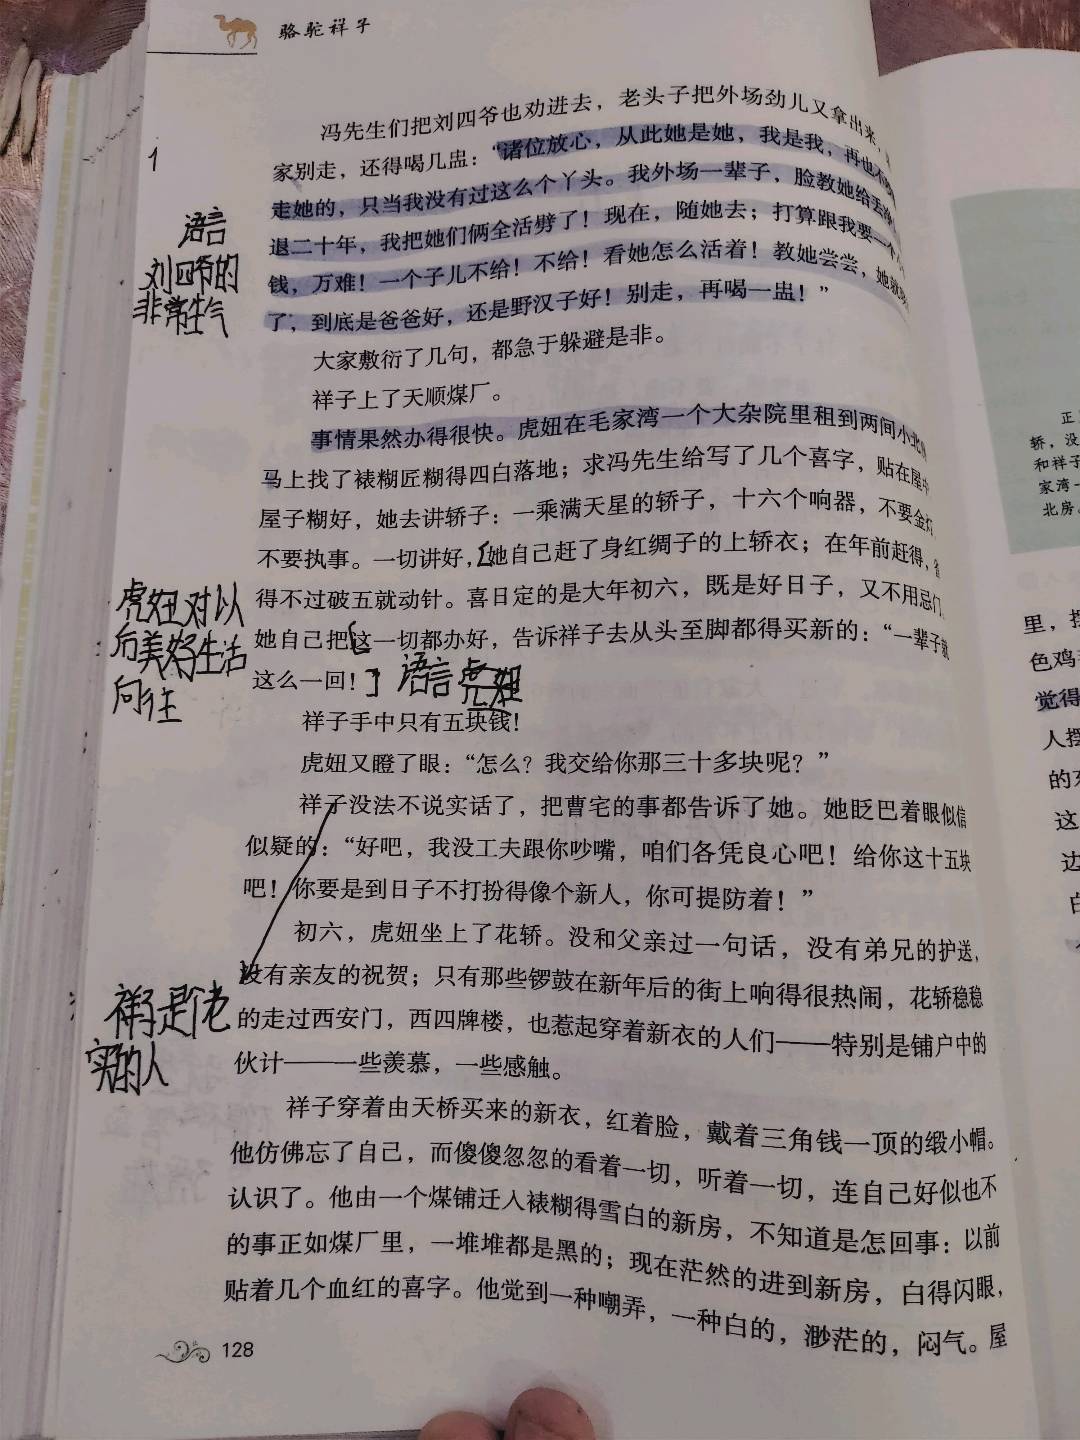 骆驼祥子
冯先生们把刘四爷也劝进去，老头子把外场劲儿又拿出来，
1
家别走，还得喝几盅：“诸位放心，从此她是她，我是我，再也不
走她的，只当我没有过这么个丫头。我外场一辈子，脸教她给丢
退二十年，我把她们俩全活劈了！现在，随她去；打算跟我要一个
钱，万难！一个子儿不给！不给！看她怎么活着！教她尝尝，她就
了，到底是爸爸好，还是野汉子好！别走，再喝一盅！”
语言
刘四爷的
非常生气
大家敷衍了几句，都急于躲避是非。
祥子上了天顺煤厂。
事情果然办得很快。虎妞在毛家湾一个大杂院里租到两间小北
马上找了裱糊匠糊得四白落地；求冯先生给写了几个喜字，贴在屋中
屋子糊好，她去讲轿子：一乘满天星的轿子，十六个响器，不要金灯
不要执事。一切讲好，她自己赶了身红绸子的上轿衣；在年前赶得，省
得不过破五就动针。喜日定的是大年初六，既是好日子，又不用忌门
她自己把这一切都办好，告诉祥子去从头至脚都得买新的：“一辈子就
这么一回！
语言 虎妞
虎妞对以
后美好生活
向往
祥子手中只有五块钱！
虎妞又瞪了眼：“怎么？我交给你那三十多块呢？”
祥子没法不说实话了，把曹宅的事都告诉了她。她眨巴着眼似信
似疑的：“好吧，我没工夫跟你吵嘴，咱们各凭良心吧！给你这十五块
吧！你要是到日子不打扮得像个新人，你可提防着！”
初六，虎妞坐上了花轿。没和父亲过一句话，没有弟兄的护送，
没有亲友的祝贺；只有那些锣鼓在新年后的街上响得很热闹，花轿稳稳
的走过西安门，西四牌楼，也惹起穿着新衣的人们——特别是铺户中的
伙计——一些羡慕，一些感触。
祥子是个老
实的人
祥子穿着由天桥买来的新衣，红着脸，戴着三角钱一顶的缎小帽。
他仿佛忘了自己，而傻傻忽忽的看着一切，听着一切，连自己好似也不
认识了。他由一个煤铺迁入裱糊得雪白的新房，不知道是怎回事：以前
的事正如煤厂里，一堆堆都是黑的；现在茫然的进到新房，白得闪眼，
贴着几个血红的喜字。他觉到一种嘲弄，一种白的，渺茫的，闷气。屋
128
正
轿，没
和祥子
家湾一
北房。
里，摆
色鸡
觉得
人摆
的东
这
边